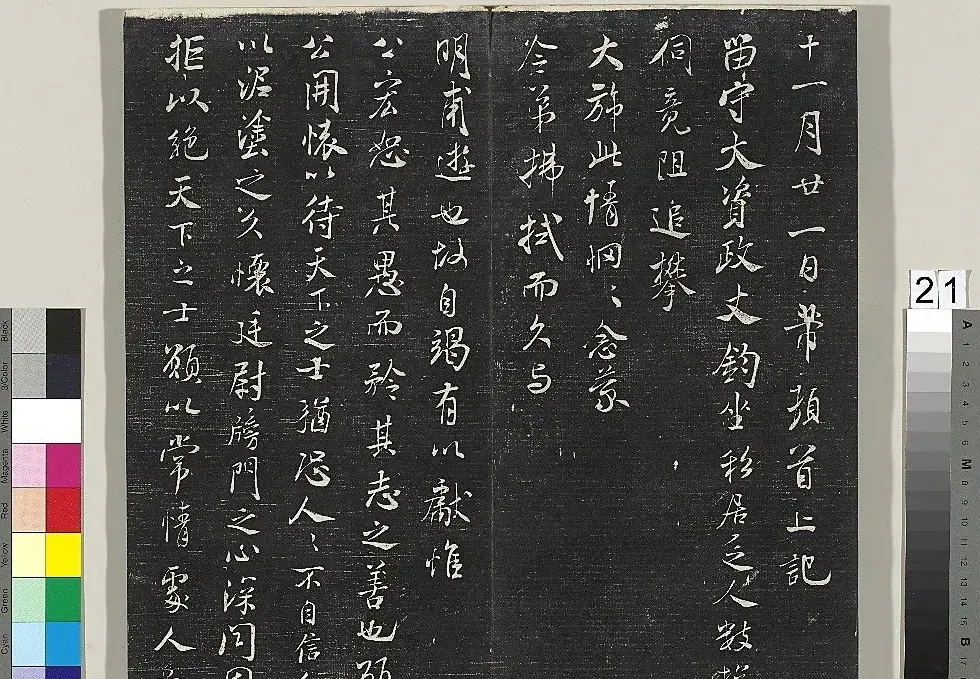 十一月廿一日黻頓首上記
留守大資政丈鈞坐移居乏人數
伺竟阻追攀
大旆此情惘〻念蒙
令弟拂拭而久与
明甫遊也故自竭有以獻惟
公宏恕其愚而矜其志之善也
公開懷以待天下之士猶恐人〻不自信
以泥塗之久懷廷尉牓門之心深閉
拒以絕天下之士願以常情處人
21
Black
3/Color
White
Magenta
Red
Yellow
Green
Cyan
A
1
2
3
4
5
6
M
8
9
10
11
12
13
14
15
B
17